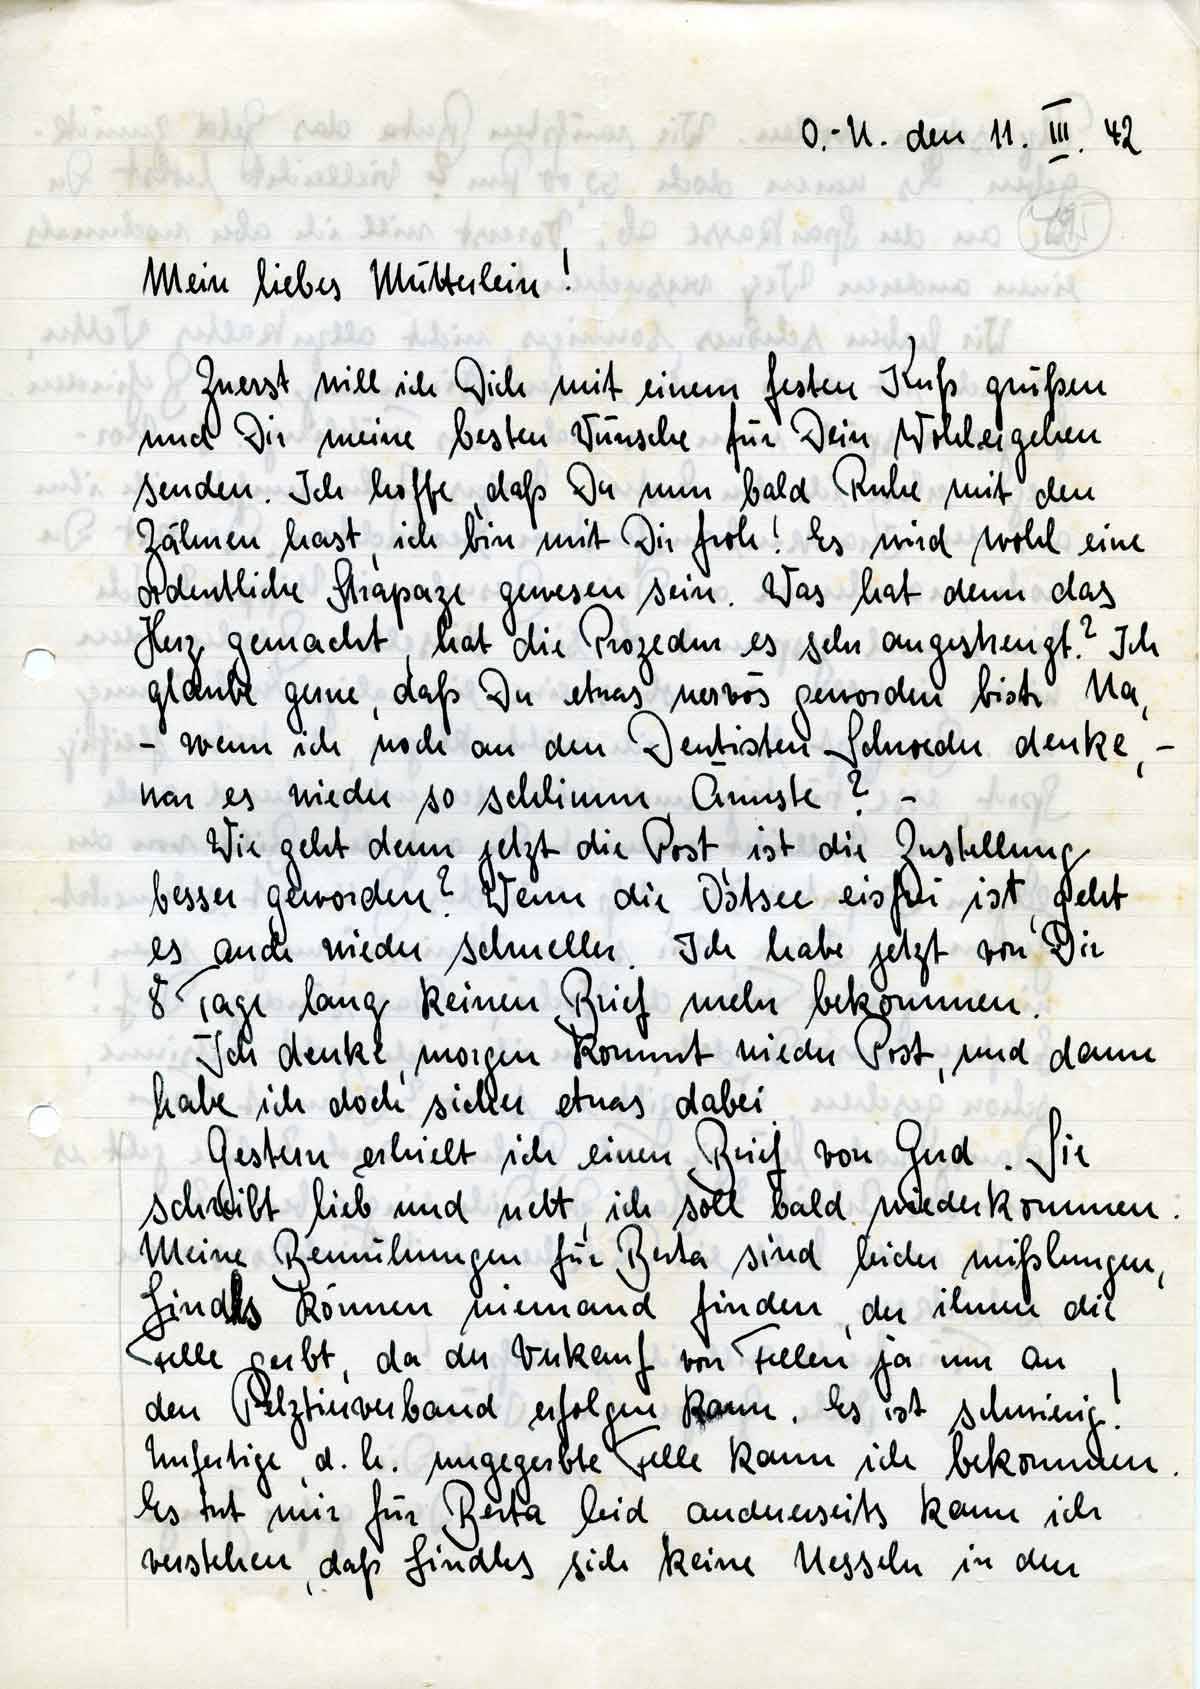 O.-U. den 11. III. 42
Mein liebes Mütterlein!
Zuerst will ich Dich mit einem festen Kuß grüßen
und Dir meine besten Wünsche für Dein Wohlergehen
senden. Ich hoffe, daß Du nun bald Ruhe mit den
Zähnen hast, ich bin mit Dir froh! Es wird wohl eine
ordentliche Strapaze gewesen sein. Was hat denn das
Herz gemacht, hat die Prozedur es sehr angestrengt? Ich
glaube gerne, daß Du etwas nervös geworden bist. Na,
- wenn ich noch an den Dentisten Schroeder denke, -
war es wieder so schlimm Ärmste? -
Wie geht denn jetzt die Post, ist die Zustellung
besser geworden? Wenn die Ostsee eisfrei ist, geht
es auch wieder schneller. Ich habe jetzt von Dir
8 Tage lang keinen Brief mehr bekommen.
Ich denke, morgen kommt wieder Post, und dann
habe ich doch sicher etwas dabei.
Gestern erhielt ich einen Brief von Gerd. Sie
schreibt lieb und nett, ich soll bald wiederkommen.
Meine Bemühungen für Berta sind leider mißlungen,
können niemand finden, der ihnen die
Felle gerbt, da der Verkauf von Fellen ja nur an
den Pelztierverband erfolgen kann. Es ist schwierig!
Unfertige, d. h. ungegerbte Felle kann ich bekommen.
Es tut mir für Berta leid, andererseits kann ich
verstehen, daß sich keine Nesseln in den